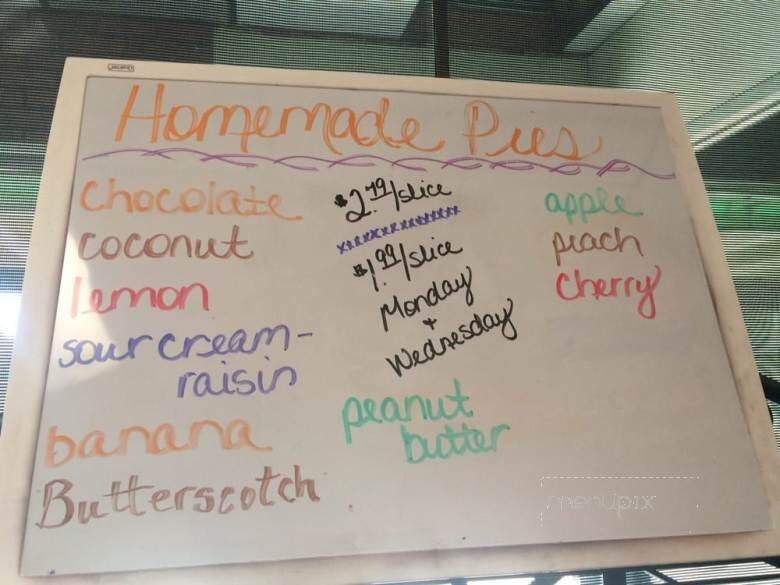 Homemade Pies
Chocolate
coconut
lemon
sour cream-
raisin
banana
Butterscotch
$2.79/slice
xxxxxxxxxxxxxx
$1.99/slice
Monday
+
Wednesday
peanut
butter
apple
peach
Cherry
menupix